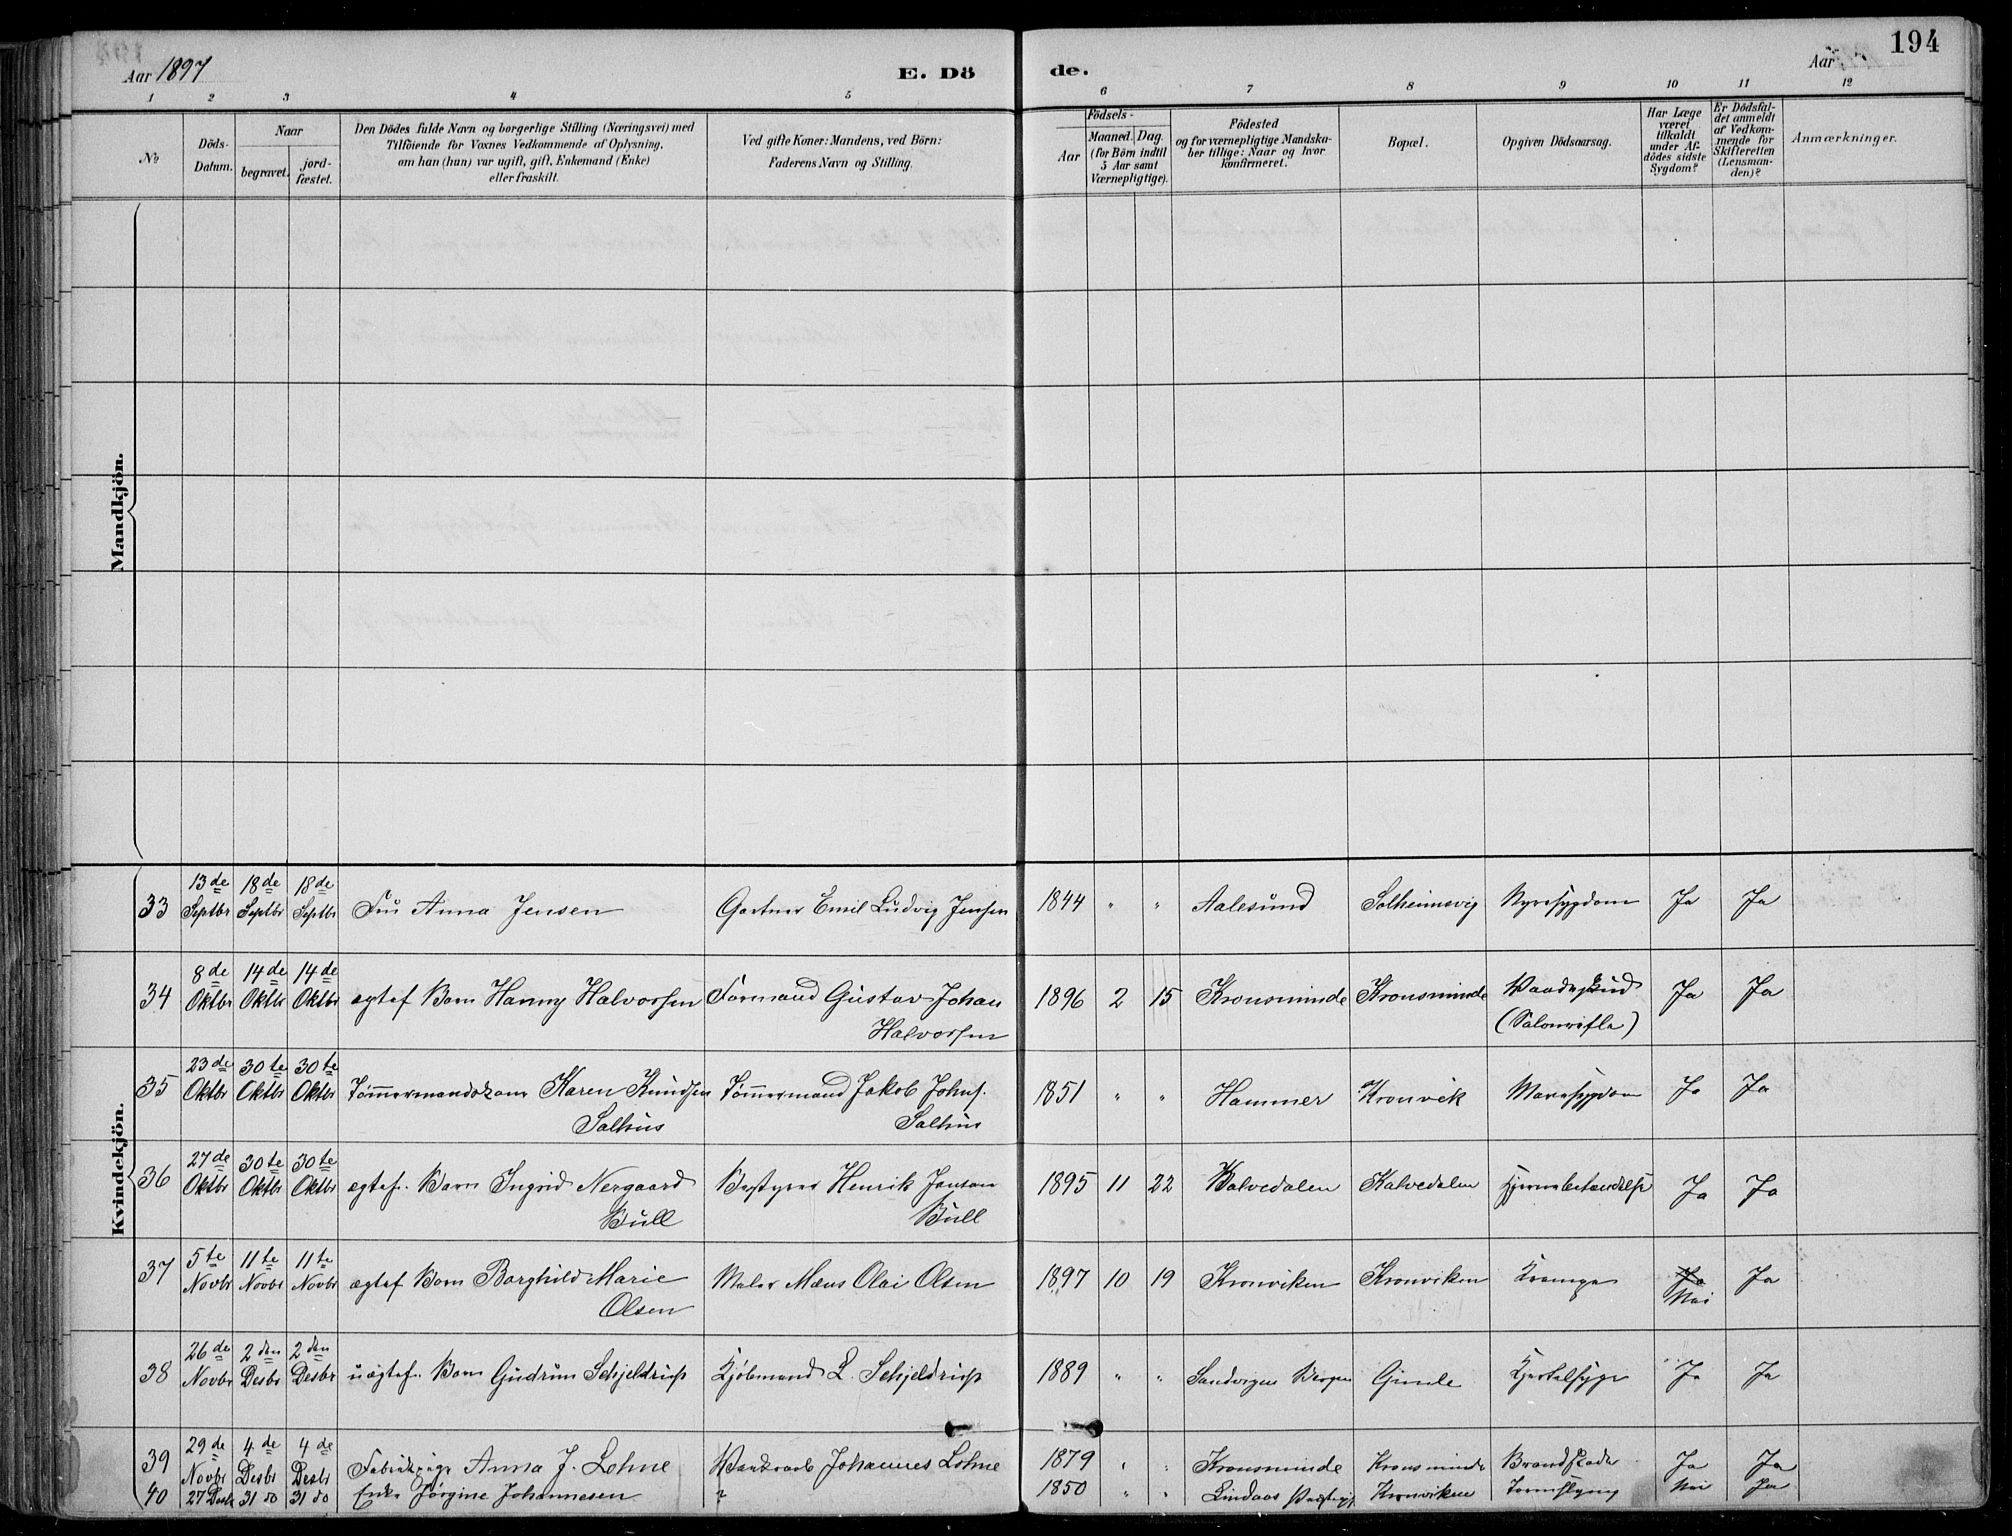 194
Aar 1897
E. Dö
de.
Aar
1 2 3 4 5 6 7 8 9 10 11 12
№
Döds-Datum.
Naar
begravet.
jord-fæstet.
Den Dödes fulde Navn og borgerlige Stilling (Næringsvei) med
Tilföiende for Voxnes Vedkommende af Oplysning,
om han (hun) var ugift, gift, Enkemand (Enke)
eller fraskilt.
Ved gifte Koner: Mandens, ved Börn:
Faderens Navn og Stilling.
Födsels-
Aar
Maaned. Dag.
(for Börn indtil
5 Aar samt
Værnepligtige).
Födested
og for værnepligtige Mandska-
ber tillige: Naar og hvor
konfirmeret.
Bopæl.
Opgiven Dödsaarsag.
Har Læge
været
tilkaldt
under Af-
dödes sidste
Sygdom?
Er Dödsfal-
det anmeldt
af Vedkom-
mende for
Skifteretten
(Lensman-
den)?
Anmærkninger.
Mandkjön.
Kvindekjön.
13de 18de 18de
33 Septbr Septbr Septbr Fru Anna Jensen Gartner Emil Ludvig Jensen 1844 " " Aalesund Solheimsvig Nyresygdom Ja Ja
8de 14de 14de
34 Oktbr Oktbr Oktbr ægtef Barn Hanny Halvorsen Formand Gustav Johan 1896 2 15 Kronsminde Kronsminde Vaadeskud Ja Ja
Halvorsen (Salonrifle)
23de 30te 30te
35 Oktbr Oktbr Oktbr Tømmermandskone Karen Knudsen Tømmermand Jakob Johns. 1851 " " Hammer Kronvik Mavesygdom Ja Ja
Salhus Salhus
27de 30te 30te
36 Oktbr Oktbr Oktbr ægtef. Barn Ingrid Nergaard Bestyrer Henrik Jansen 1895 11 22 Kalvedalen Kalvedalen Hjernebetændelse Ja Ja
Bull Bull
5te 11te 11te
37 Novbr Novbr Novbr ægtef Barn Borghild Marie Maler Mæns Olai Olsen 1897 10 19 Kronviken Kronviken Krampe Ja Ja
Olsen Nei
26de 2den 2den
38 Novbr Desbr Desbr uægtef. Barn Gudrun Schjeldrup Kjøbmand L. Schjeldrup 1889 " " Sandvigen Bergen Gimle Kjertelsyge Ja Ja
29de 4de 4de
39 Novbr Desbr Desbr Fabrikpige Anna J. Lohne Johannes Lohne 1879 " " Kronsminde Kronsminde Brandskade Ja Ja
40 27 Desb 31 do 31 do Enke Jørgine Johannesen ? 1850 " " Lindaas Præstegj Kronviken Nei Ja